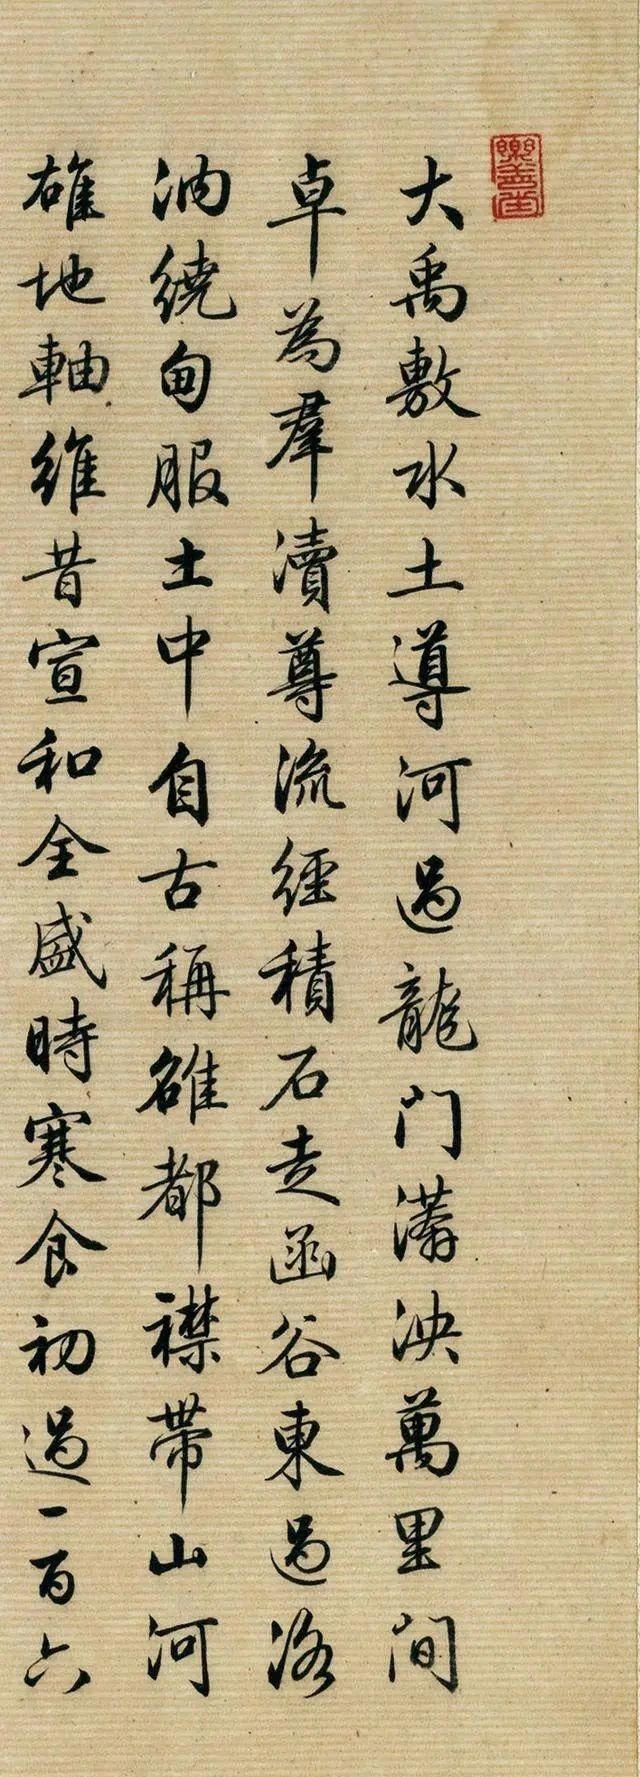 樂善堂
大禹敷水土導河過龍門漭泱萬里間
卓為羣瀆尊流經積石走函谷東過洛
汭繞甸服土中自古稱雒都襟帶山河
雄地軸維昔宣和全盛時寒食初過一百六